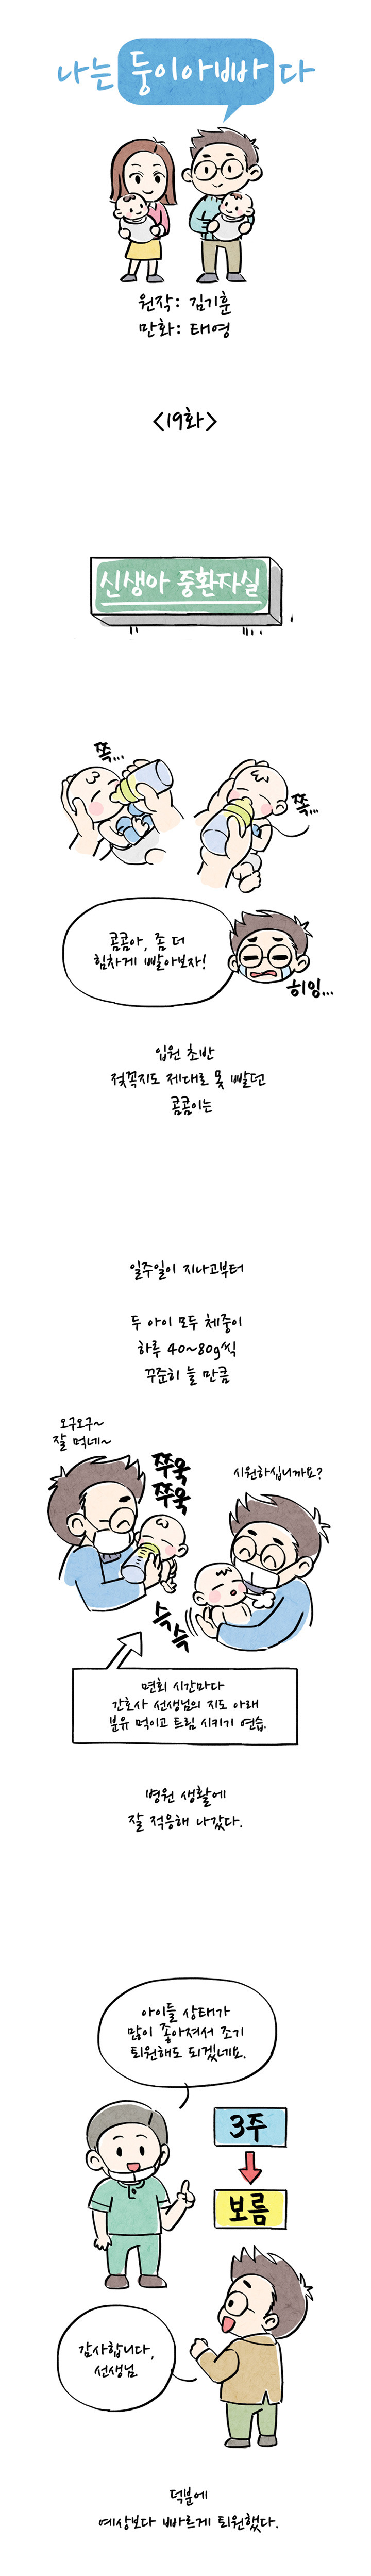 나는 둥이아빠다
원작: 김기훈
만화: 태영
<19화>
신생아 중환자실
쪽...
쪽...
콤콤아, 좀 더
힘차게 빨아보자!
히잉...
입원 초반
젖꼭지도 제대로 못 빨던
콤콤이는
일주일이 지나고부터
두 아이 모두 체중이
하루 40~80g씩
꾸준히 늘 만큼
오구오구~
잘 먹네~
쭈욱
쭈욱
시원하십니까요?
슥슥
면회 시간마다
간호사 선생님의 지도 아래
분유 먹이고 트림 시키기 연습.
병원 생활에
잘 적응해 나갔다.
아이들 상태가
많이 좋아져서 조기
퇴원해도 되겠네요.
3주
보름
감사합니다,
선생님
덕분에
예상보다 빠르게 퇴원했다.